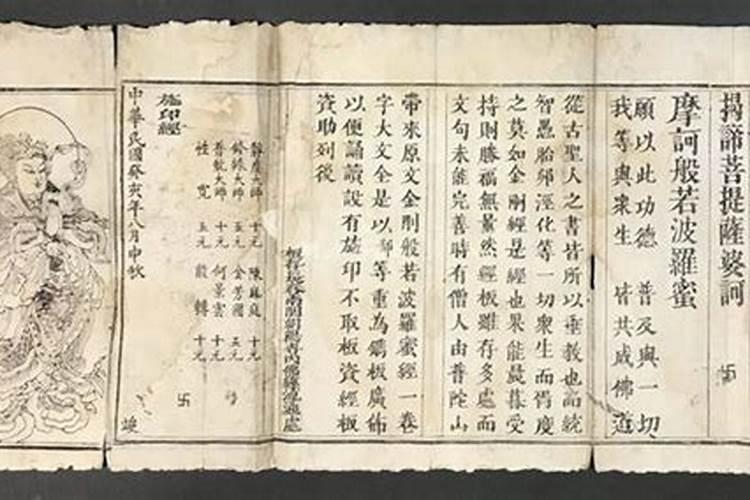 揭諦菩提薩婆訶
卍
摩訶般若波羅蜜
願以此功德 普及與一切
我等與衆生 皆共成佛道
從古聖人之書皆所以垂教也而統
智愚胎卵溼化等一切衆生而胥度
之莫如金剛經是經也果能晨暮受
持則勝福無量然經板雖存多處而
文句未能完善時有僧人由普陀山
帶來原文金剛般若波羅蜜經一卷
字大文全是以鄙等重為鐫板廣佈
以便誦讀設有施印不取板資經板
資助列後
大師 十元 陳 庭 十元
大師 五元 金芳國 五元
大師 十元 何景雲 十元
性寬 五元 毅轉 十元
卍
施印經
中華民國癸亥年八月中秋
竣